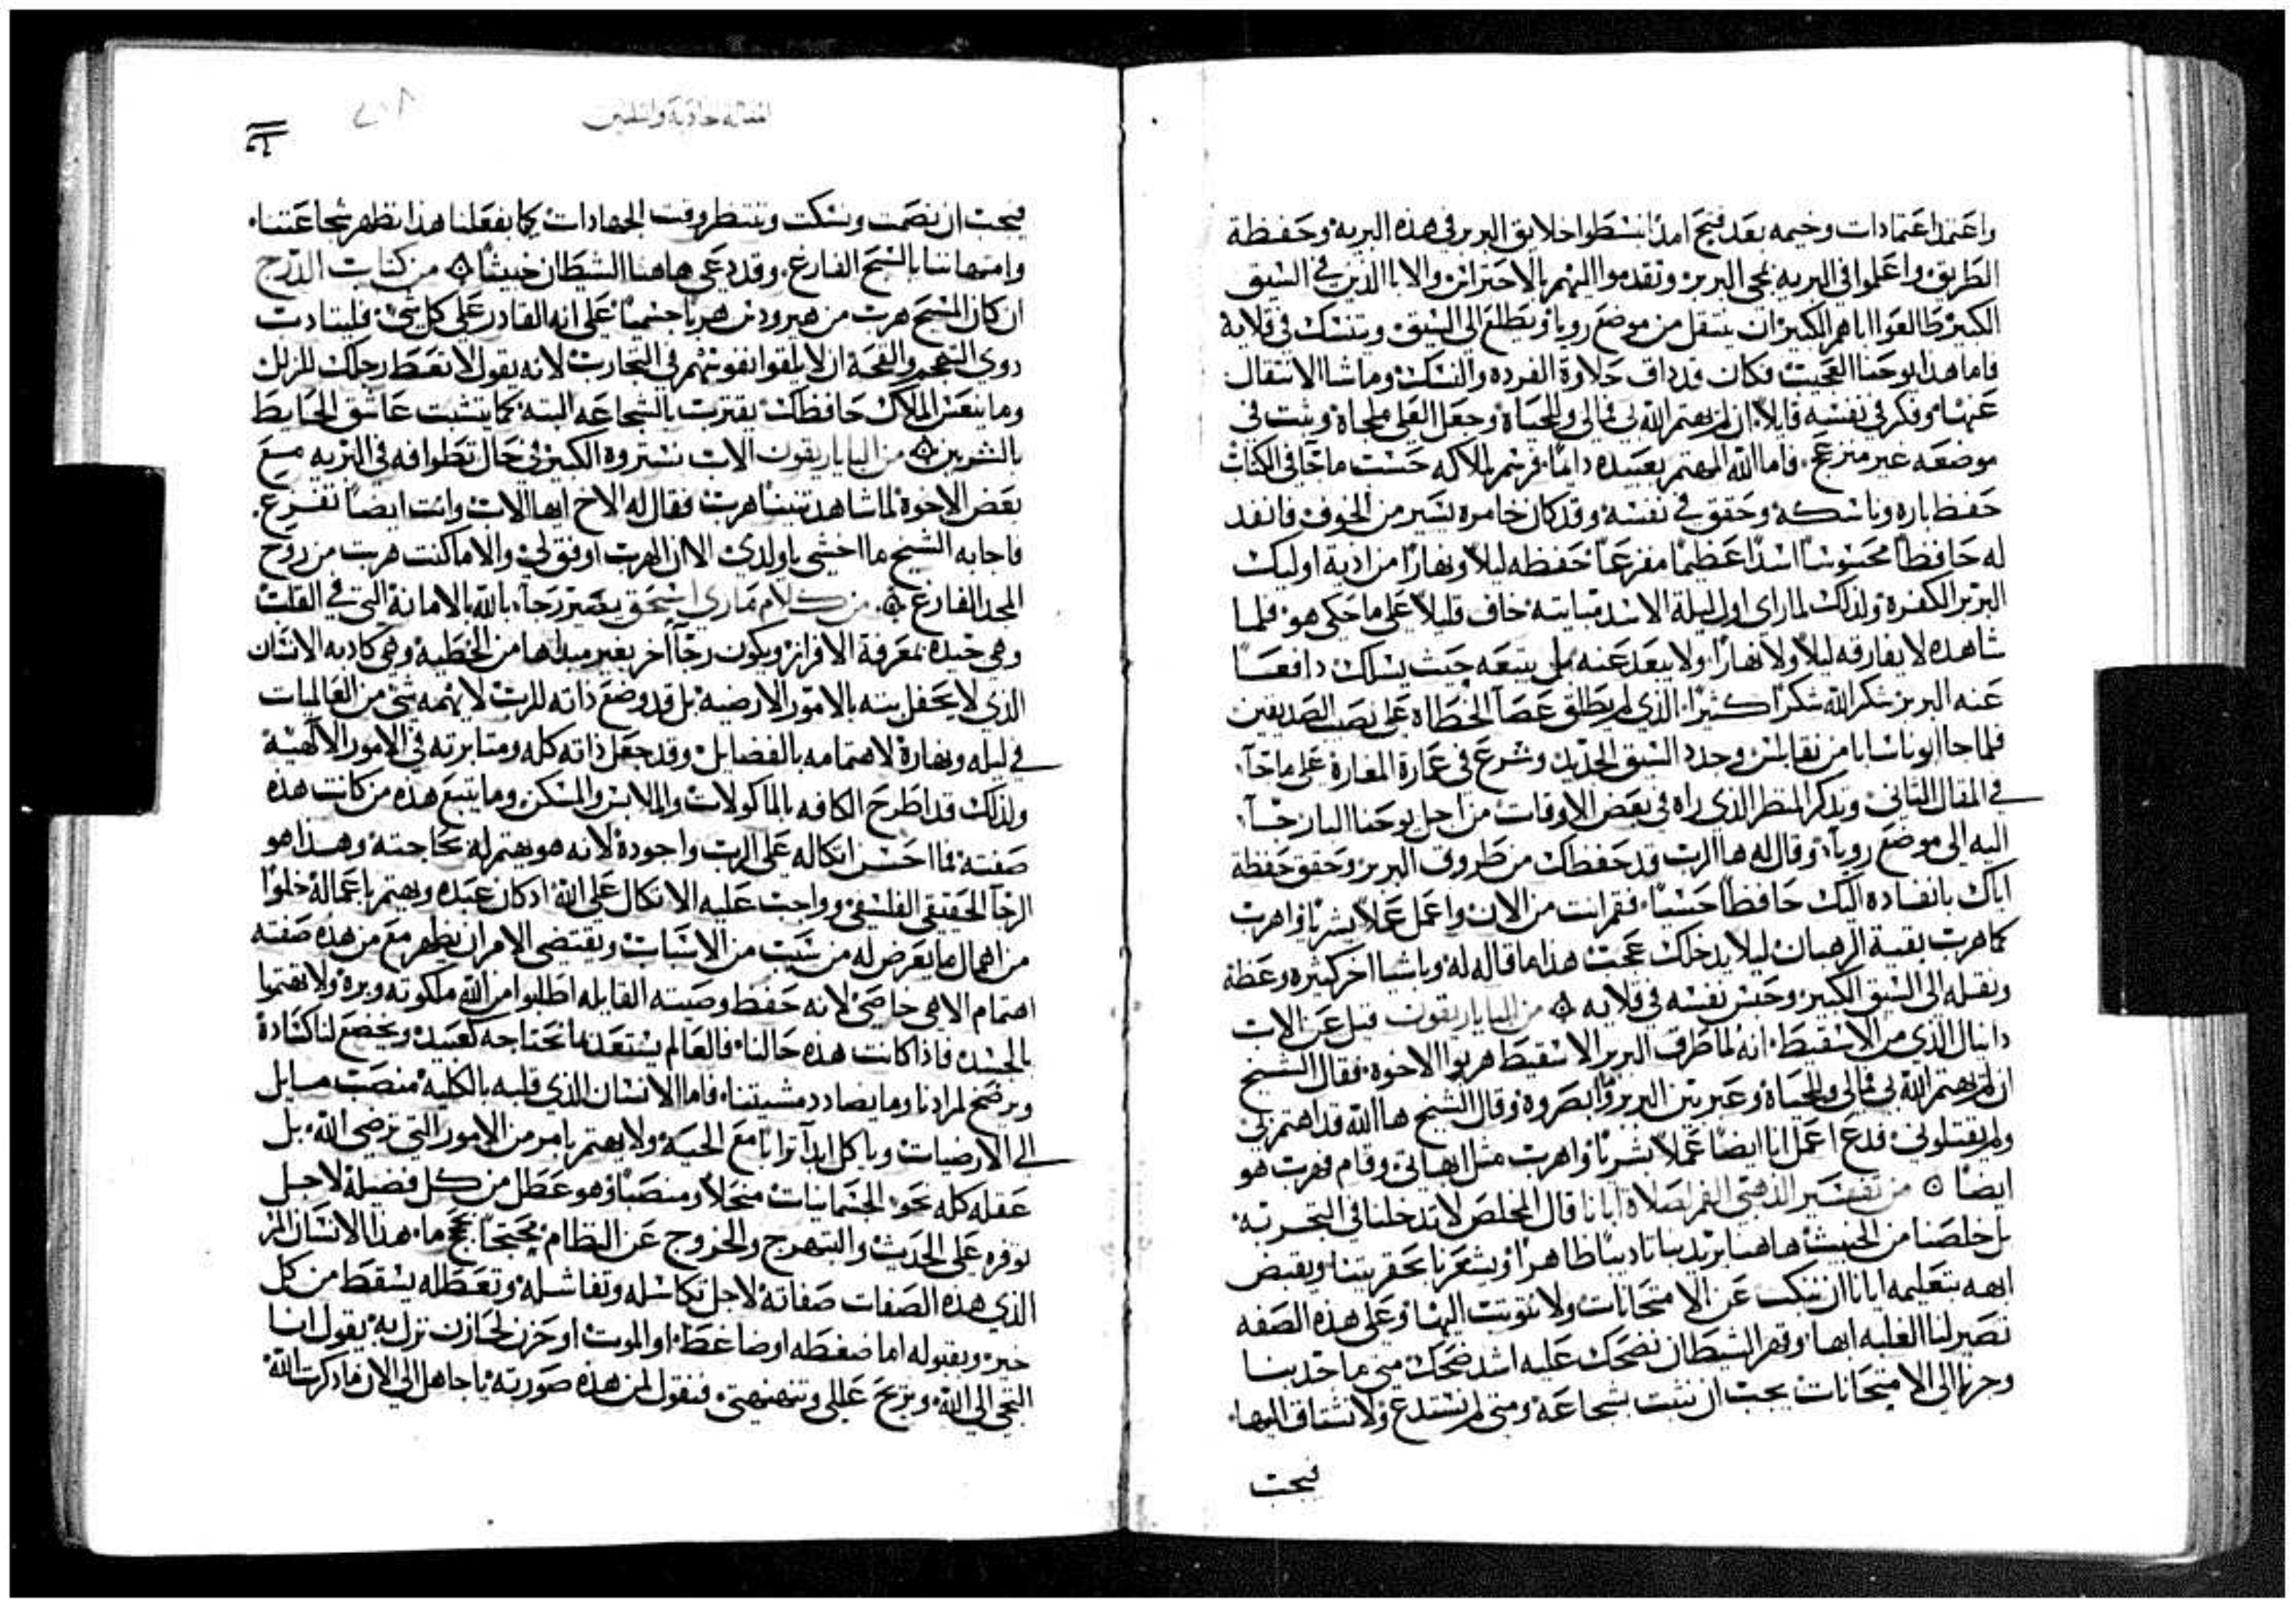 واعتمد اعتمادات وخيمه بعد فيح امد انبسطوا خلايق البربر في هذه البريه وحفظة
الطريق واعلموا في البريه بمجى البربر وتقدموا اليهم بالاحتراس والابا الذين في السيق
الكبير طالعوا اباهم الكبير ان ينتقل من موضع روبا ويطلع الى السيق ويتنسك في قلاية
فاما هذا يوحنا العجيب فكان قد داق حلاوة الفرده والنسك وما شا الانتقال
عنها وفكر في نفسه قايلا ان لم يهتم الله بي فمالي وللحياة وجعل العلى ملجاه وثبت في
موضعه غير منزعج فاما الله المهتم بعبيده دايما فرسم لملاكه حسب ما جا في الكتاب
حفظ باره وناسكه وحقق في نفسه وقد كان خامره يسير من الخوف فانفد
له حافظا محسوسا اسدا عظيما مفزعا حفظه ليلا ونهارا من اذية اوليك
البربر الكفره ولذلك لما راى اول ليلة الاسد مبايته خاف قليلا على ما حكى هو فلما
شاهده لا يفارقه ليلا ولا نهارا ولا يبعد عنه بل يتبعه حيث يسلك دافعا
عنه البربر شكر الله شكرا كثيرا الذي لم يطلق عصا الخطاه على نصيب الصديقين
فلما جا ابونا سابا من نقابلس وجدد السيق الجديد وشرع في عمارة المغارة على ما جا
في المقال الثاني وتدكر المنظر الذي راه في بعض الاوقات من اجل يوحنا البار جا
اليه الى موضع روبا وقال له ها الرب قد حفظك من طروق البربر وحقق حفظة
اياك بانفاده اليك حافظا حسيا فقم انت من الان واعمل عملا بشريا واهرب
كما هرب بقية الرهبان ليلا يدخلك عجب هذا ما قاله له وباشيا اخر كثيره وعظة
ونقله الى السيق الكبير وحبس نفسه في قلايه من الباياريقون قيل عن الاب
دانيال الذي من الاسقيط انه لما طرق البربر الاسقيط هربوا الاخوه فقال الشيخ
ان لم يهتم الله بي فمالي وللحياة وعبر بين البربر وما ابصروه وقال الشيخ ها الله قد اهتم بي
ولم يقتلوني فدع اعمل انا ايضا عملا بشريا واهرب مثل ابهاتي وقام فهرب هو
ايضا من تفسير الذهبي الفم لصلاة ابانا قال المخلص لا تدخلنا في التجربه
بل خلصنا من الخبيث هاهنا يريد بنا تاديبا ظاهرا ويشعرنا بحقريتنا ويقبض
ابهه بتعليمه ايانا ان ننكب عن الامتحانات ولا نتوثب اليها وعلى هذه الصفه
تصير لنا الغلبه ابها وقهر الشيطان نضحك عليه اشد ضحك متى ما جدبنا
وجرنا الى الامتحانات يجب ان نثبت بشجاعة ومتى لم نستدع ولا نشتاق اليها
فيجب
المقاله حادية والثلثين
فيجب ان نصمت ونسكت وننتظر وقت الجهادات كما بفعلنا هذا نظهر شجاعتنا
وامتهاننا بالسبح الفارغ وقد دعي هاهنا الشيطان خبيثا من كتاب الدرج
ان كان المسيح هرب من هيرودس هربا جسميا على انه القادر على كل شي فليتادب
دوي التعجم والقحة ان لا يلقوا نفوسهم في التجارب لانه يقول لا تعط رجلك للزلل
وما ينعس الملاك حافظك يقترب بالشجاعه البته كما يتشبث عاشق الحايط
بالشربين من الباياريقون الاب نستروه الكبير في حال تطوافه في البريه مع
بعض الاخوة لما شاهد تنينا هرب فقال له الاخ ايها الاب وانت ايضا تفزع
فاجابه الشيخ ما اخشى ياولدي الا ان الهرب اوفق لي والا ما كنت هربت من روح
المجد الفارغ من كلام ماري اسحق يصير رجا بالله بالامانة التي في القلب
وهي جيده بمعرفة الافراز ويكون رجا اخر بغير ميدانها من الخطيه وهي كادبه الانسان
الذي لا يحفل بته بالامور الارضيه بل قد وضع ذاته للرب لا يهمه شي من العالميات
في ليله ونهارة لاهتمامه بالفضايل وقد جعل ذاته كله ومثابرته في الامور الالهية
ولذلك قد اطرح الكافه بالماكولات والملابس والمسكن وما يتبع هذه من كانت هده
صفته فما احسن اتكاله على الرب واجوده لانه هو يهتم له بحاجته وهذا هو
الرجا الحقيقي الفلسفي وواجب عليه الاتكال على الله اد كان عبده ويهتم باعماله خلوا
من اهمال ما يعرض له من سبب من الاسباب ويقتضي الامر ان يظهر مع من هذه صفته
اهتمام الاهي خاصي لانه حفظ وصيته القايله اطلبوا من الله ملكوته وبره ولا تهتموا
بالجسد فاذا كانت هذه حالنا فالعالم يستعد ما نحتاجه كعبيد ويخضع لنا كسادة
ويرضخ لمرادنا وما يضادد مشيتنا فاما الانسان الذي قلبه بالكليه منصب مايل
الى الارضيات وياكل ابدا ترابا مع الحية ولا يهتم بامر من الامور التي ترضي الله بل
عقله كله نحو الجسمانيات منحلا ومنصبا وهو عطل من كل فضيلة لاجل
توفره على الحديث والتهرج والخروج عن النظام محتجا بحجج ما هذا الانسان المر
الذي هذه الصفات صفاته لاجل تكاسله وتفاشله وتعطله يسقط من كل
خير وبقبوله اما ضغطه او ضاغط او الموت او حزن لحازن نزل به يقول انا
التجي الى الله ويزيح عللي وتنهنهني فنقول لمن هذه صورته ياجاهل الى الان ما دكرت الله